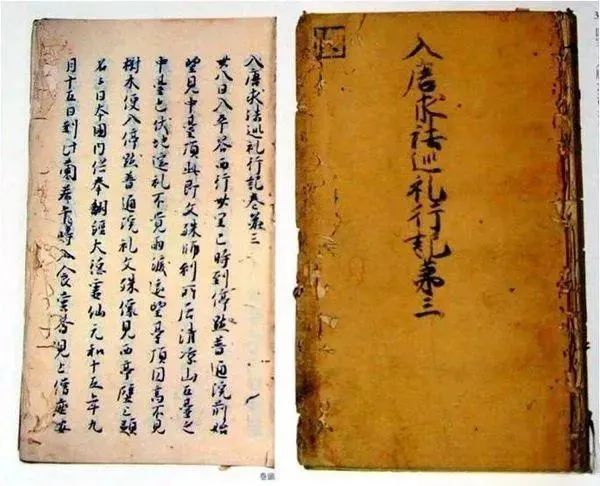 入唐求法巡礼行記第三
入唐求法巡礼行記卷第三
廿八日入平谷西行卅里巳時到停點普通院前始
望見中臺頂此即文殊師利所居清凉山五臺之
中臺也伏地遥礼不覺雨淚遥望臺頂圓高不見
樹木便入停點普通院礼文殊像見西亭壁上題
名云日本國內供奉翻經大德靈仙元和十五年九
月十五日到此蘭若齋時入食堂齋見上僧座安
巻頭